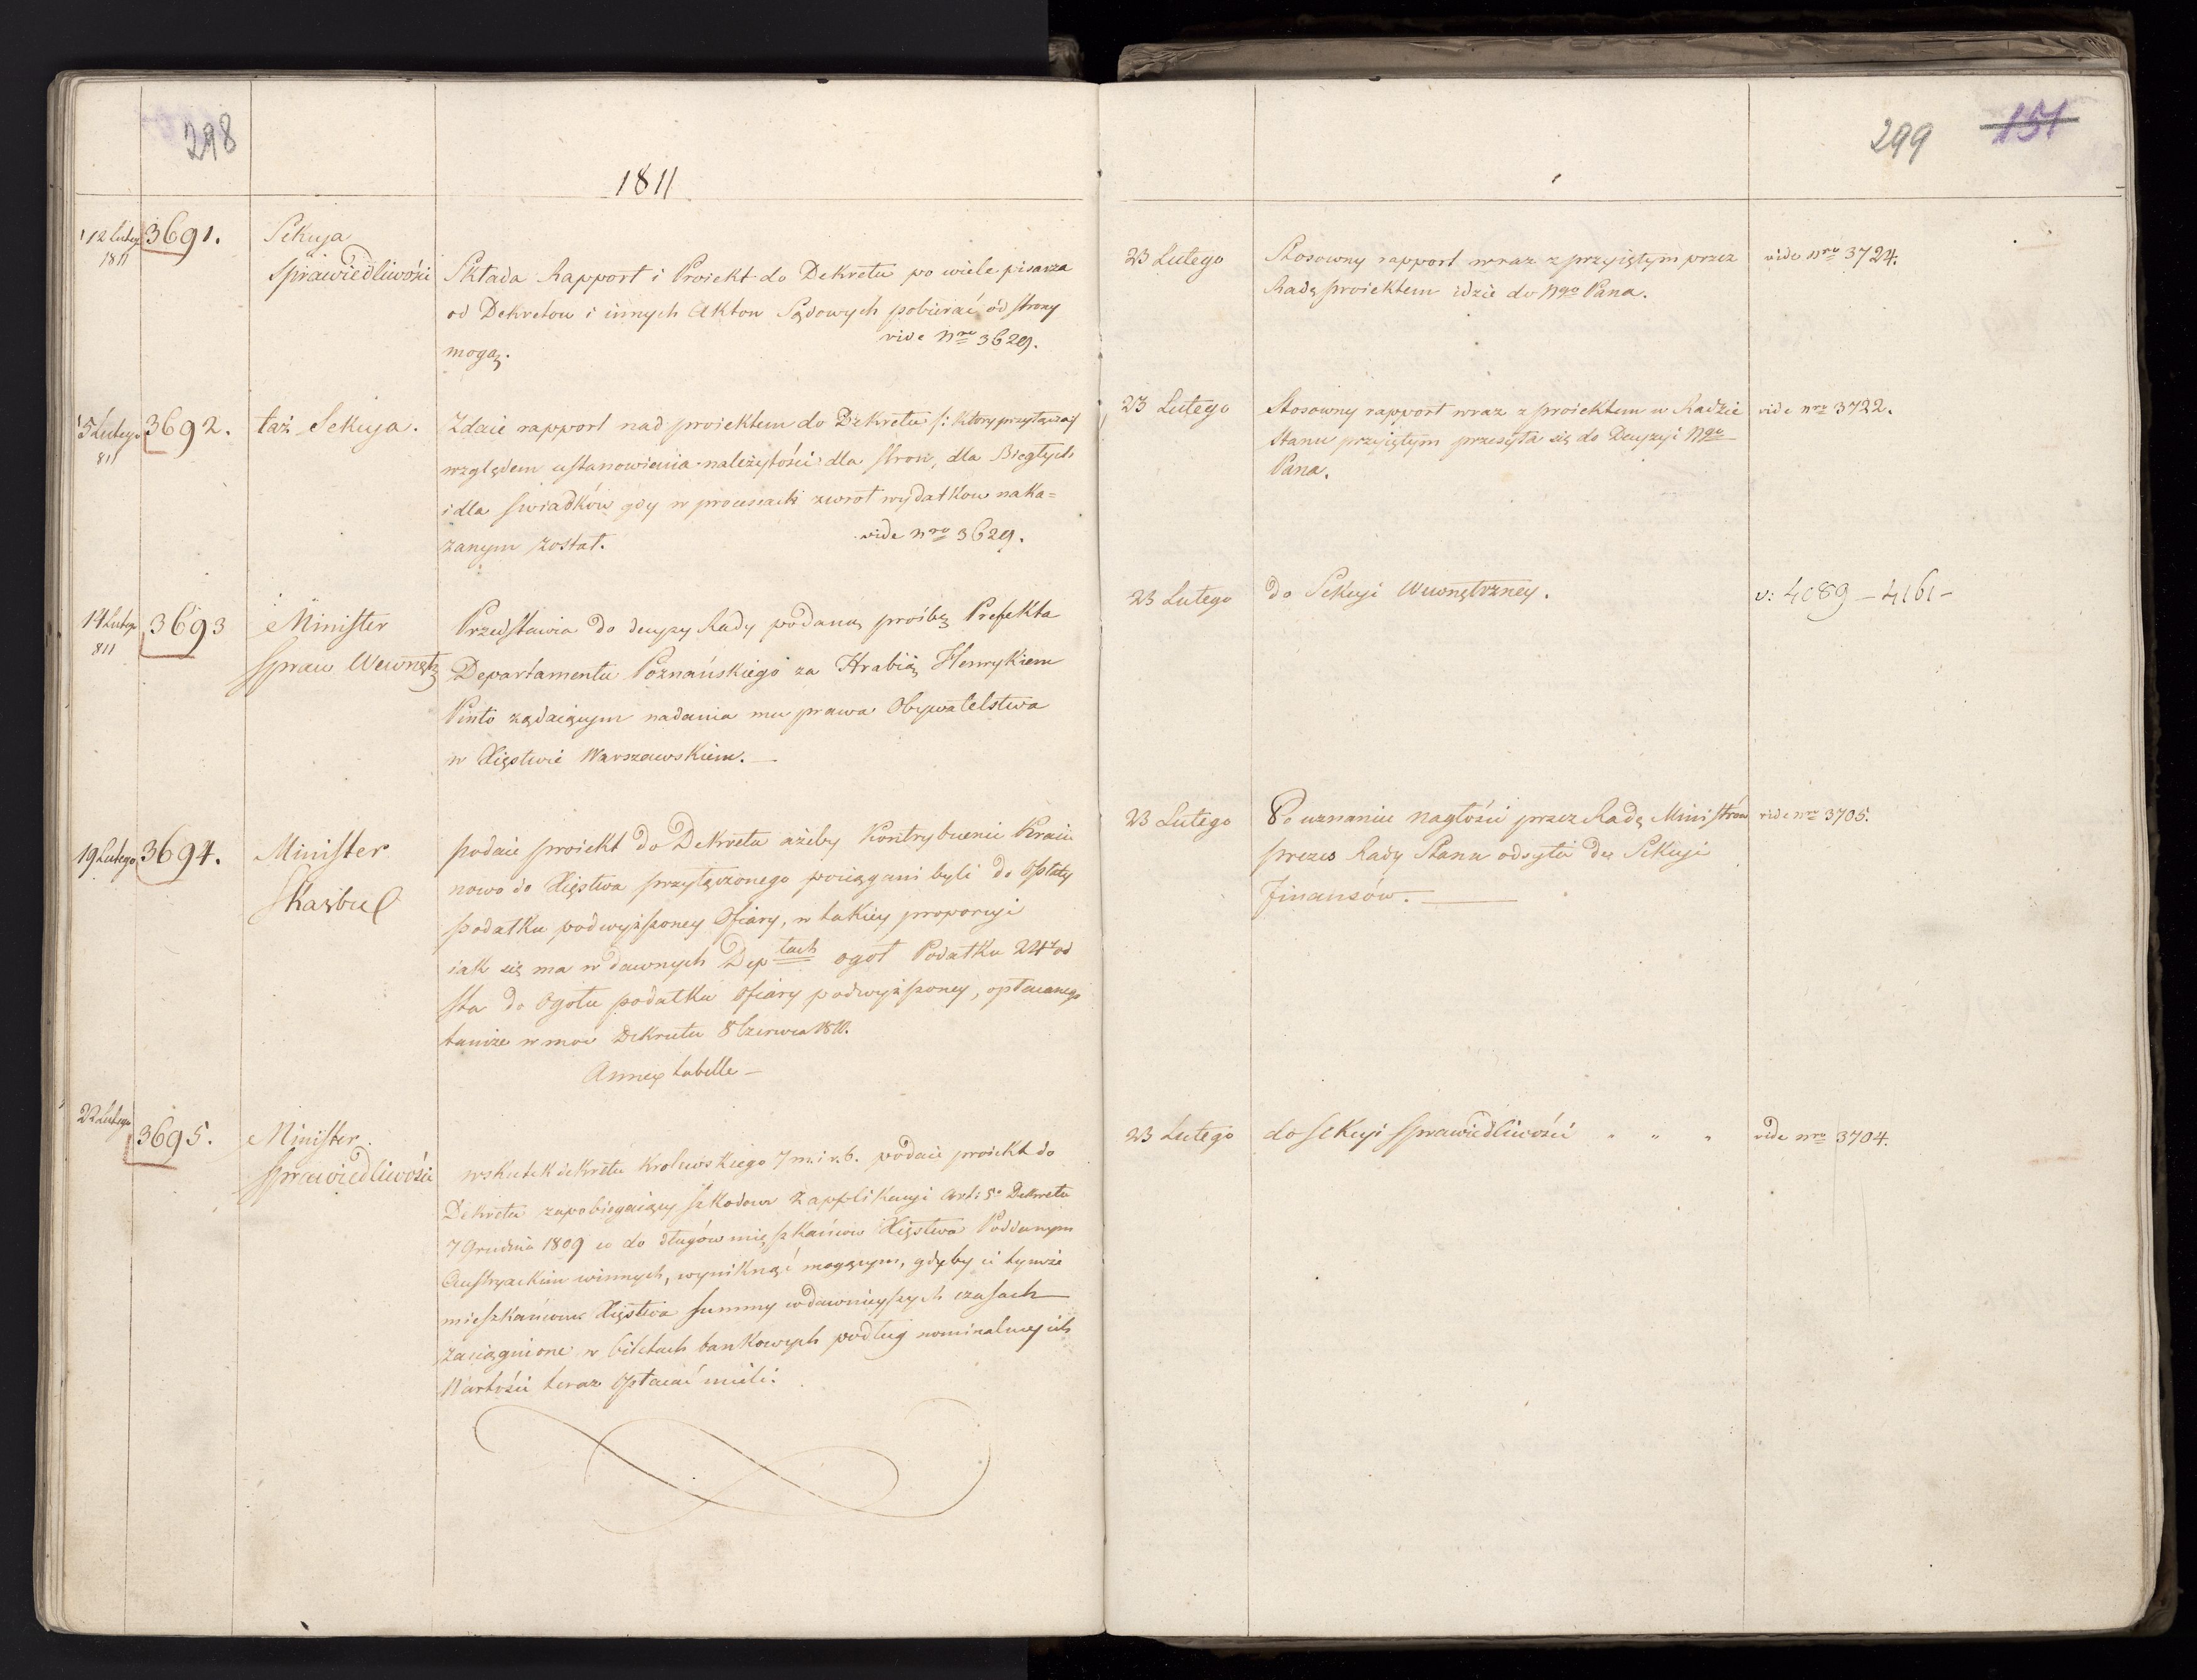 298
1811
12 Luteg
1811
3691.
Sekcya
Sprawiedliwości
Składa Rapport i Proiekt do Dekretu po wiele pisarza
od Dekretow i innych Aktow Sądowych pobierać od strony
mogą.
vide Nro 3629.
15 Lutego
811
3692.
taż Sekcya.
Zdaie rapport nad proiektem do Dekretu /: ktory przyłącza :/
względem ustanowienia należytości dla stron, dla Biegłych
i dla swiadków gdy w processach zwrot wydatkow naka=
zanym został.
vide nro 3629.
14 Luteg
811
3693
Minister
Spraw Wewnętz
Przedstawia do decyzy Rady podaną prośbę Prefekta
Departamentu Poznańskiego za Hrabią Henrykiem
Pinto żądaiącym nadania mu prawa Obywatelstwa
w Xięstwie Warszawskiem.
19 Lutego
3694.
Minister
Skarbu
podaie proiekt do Dekretu ażeby Kontrybuenci Kraiu
nowo do Xięstwa przyłączonego pociągani byli do Opłaty
podatku podwyższoney Ofiary, w takiey proporcyi
iak się ma w dawnych Deptach ogół Podatku 24 od
sta do Ogołu podatku Ofiary podwyższoney, opłacanego
tamże w moc Dekretu 8 Czerwca 1811.
Annex tabelle
22 Lutego
3695.
Minister
Sprawiedliwości
wskutek dekretu Krolewskiego 7 m. i r. b. podaie proiekt do
Dekretu zapobiegaiący szkodom z applikacyi Art: 5o Dekretu
7 Grudnia 1809 co do długów mięszkańcow Xięstwa Poddanym
Austryackim winnych, wyniknąć mogącym, gdyby ci tymże
mieszkańcom Xięstwa summy w dawnieyszych czasach
zaciągnione w biletach bankowych podług nominalney ich
Wartości teraz Opłacać mieli.
299
151
23 Lutego
Stosowny rapport wraz z przyiętym przez
Radę proiektem idzie do Ngo Pana.
vide Nro 3724.
23 Lutego
Stosowny rapport wraz z proiektem w Radzie
Stanu przyiętym przesyła się do Decyzyi Ngo
Pana.
vide nro 3722.
23 Lutego
do Sekcyi Wewnętrzney.
v: 4089 – 4161 –
23 Lutego
Po uznaniu nagłości przez Radę Ministrów
prezes Rady Stanu odsyła do Sekcyi
Finansów.
vide nro 3705.
23 Lutego
do Sekcyi Sprawiedliwości " " "
vide nro 3704.